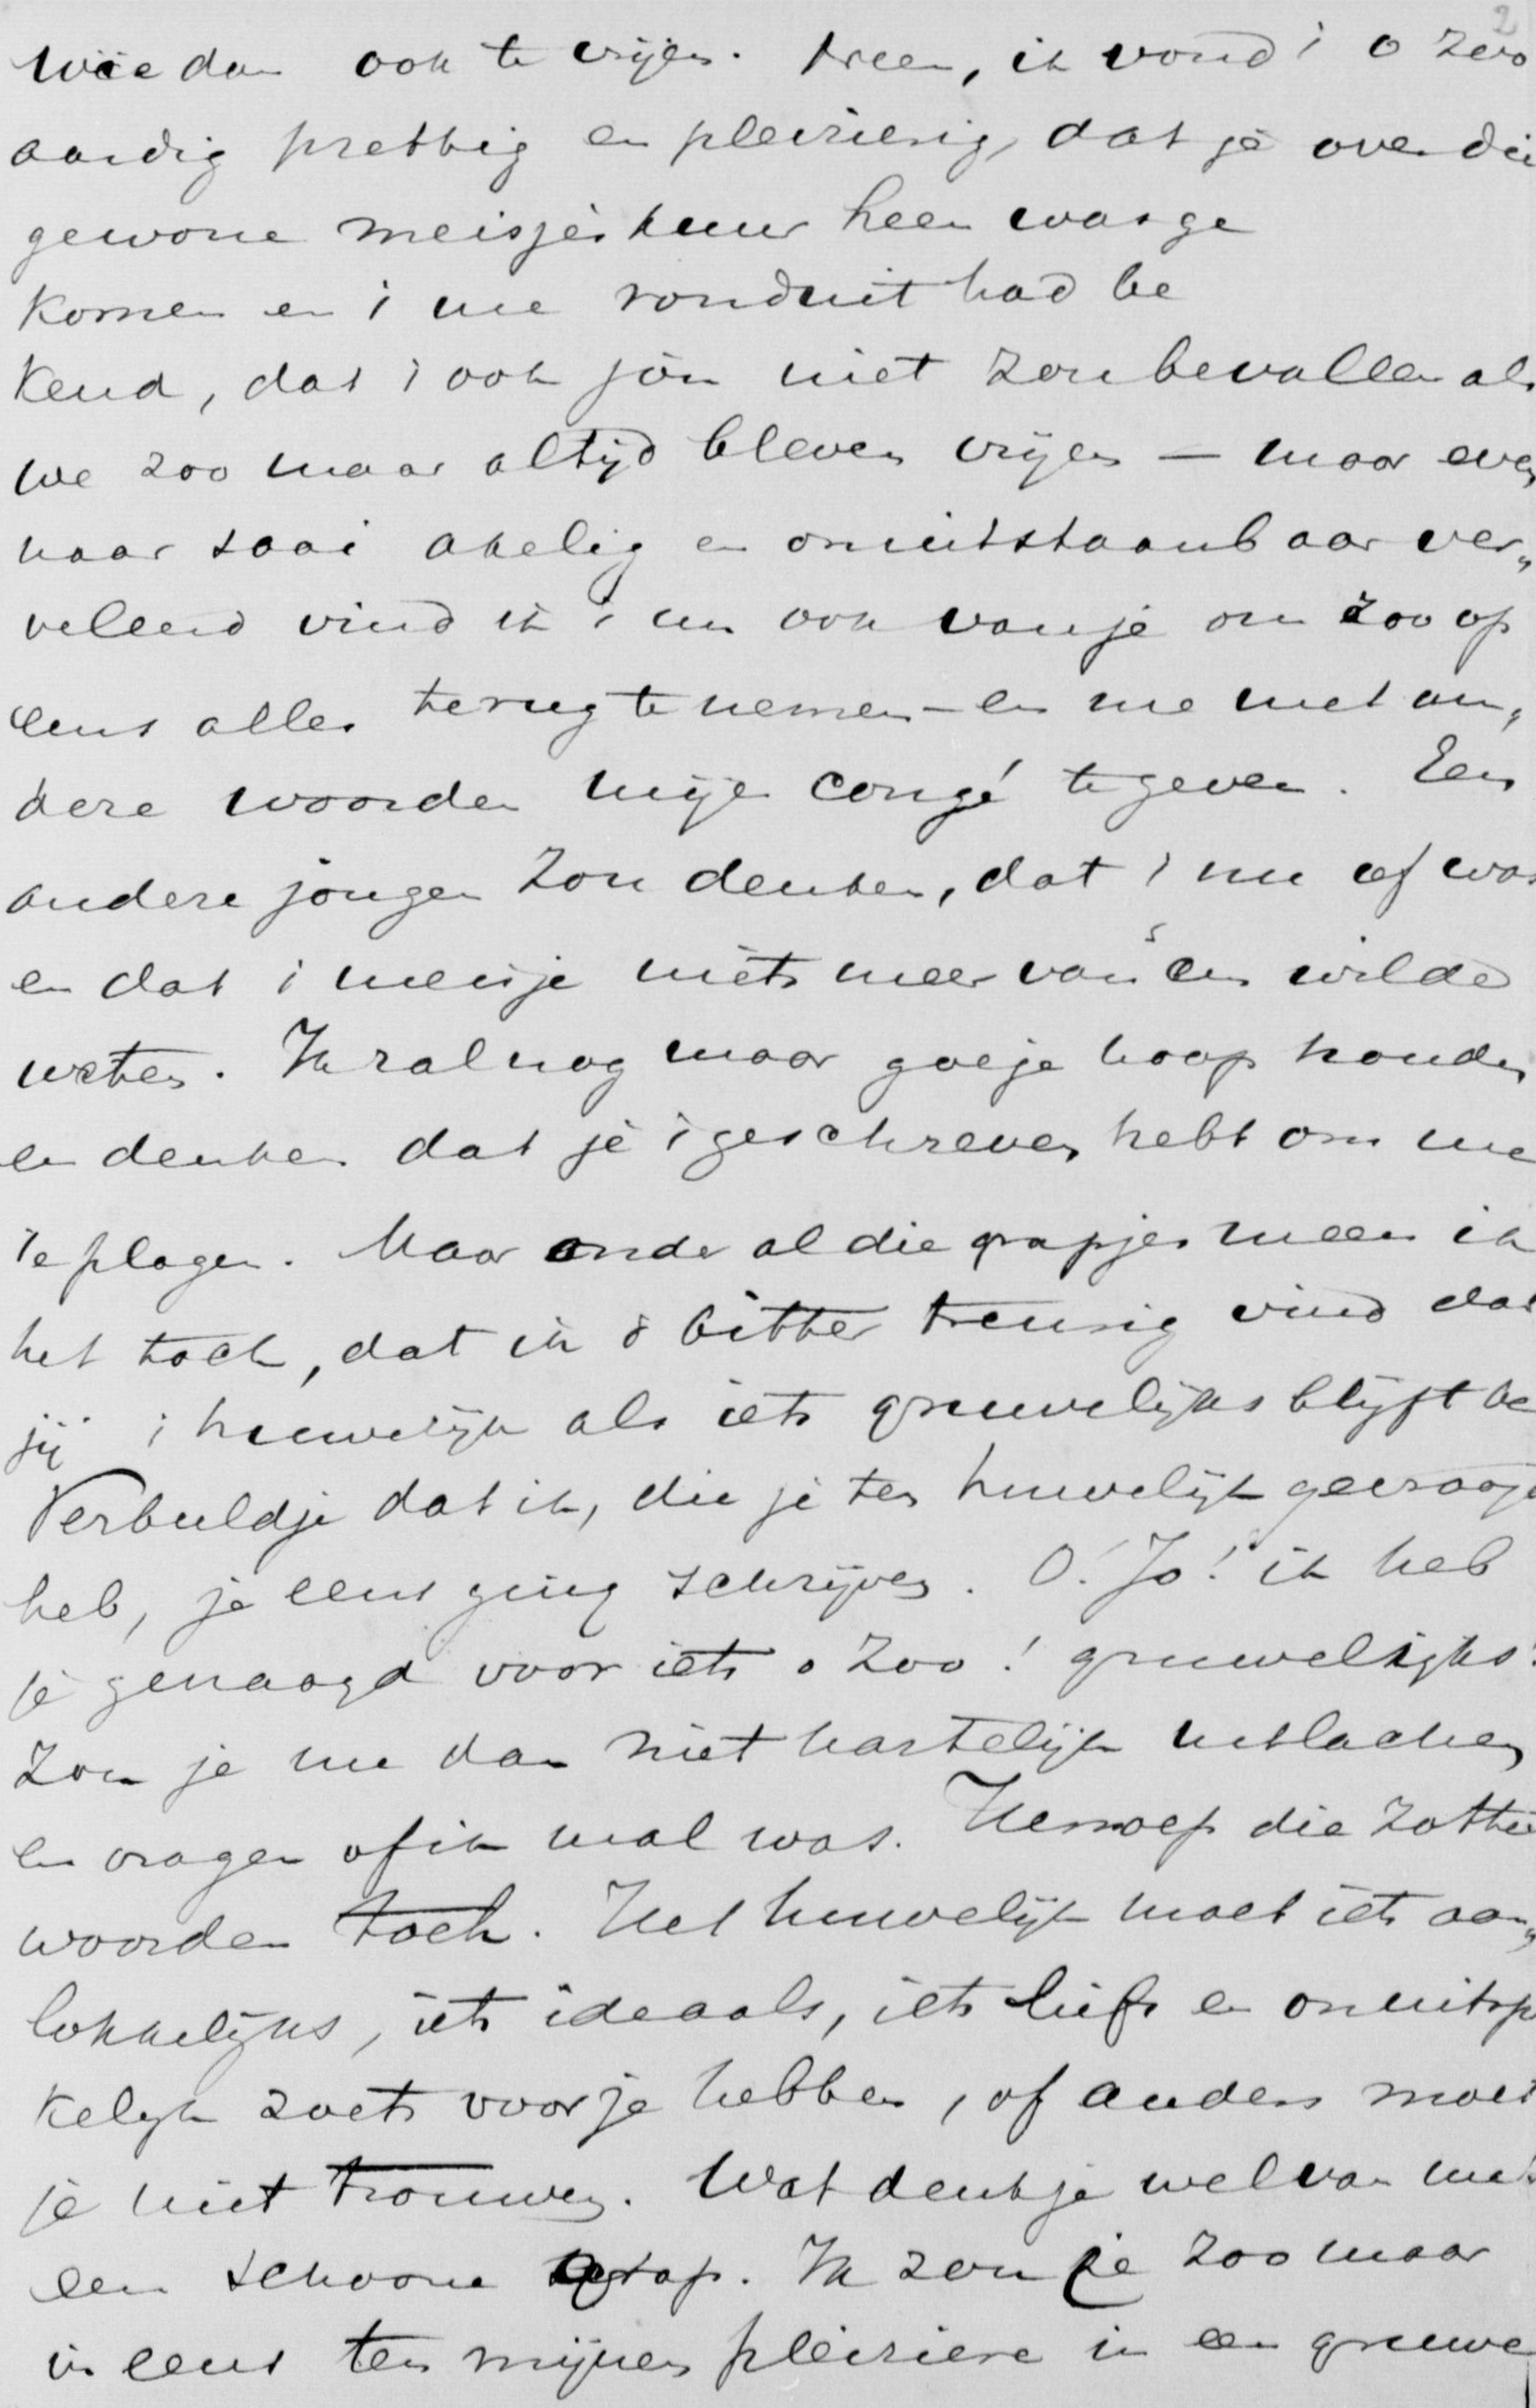 2
wie dan ook te vrijen. Neen, ik vond i o zoo
aardig prettig en pleizierig, dat je over die
gewone meisjeskuur heen was ge
komen en i me ronduit had be
kend, dat i ook jou niet zou bevallen als
we zoo maar altijd bleven vrijen — maar even
naar saai akelig en onuitstaanbaar ver„
velend vind ik i nu ook van je om zoo op
eens alles terug te nemen — en me met an„
dere woorden mijn congé te geven. Een
andere jongen zou denken, dat i nu af was
en dat i meisje niets meer van 's en wilde
weten. Ik zal nog maar goeje hoop houden
en denken dat je i geschreven hebt om me
te plagen. Maar onder al die grapjes meen ik
het toch, dat ik o bitter treurig vind dat
jij i huwelijk als iets gruwelijks blijft be
Verbeeld je dat ik, die je ten huwelijk gevraagd
heb, je eens ging schrijven. O! Jo! ik heb
je gevraagd voor iets o zoo! gruwelijks!
Zou je me dan niet hartelijk uitlachen
en vragen of ik mal was. Herroep die zotte
woorden toch. Het huwelijk moet iets aan„
lokkelijks, iets ideaals, iets liefs en onuitsp
kelijk zoets voor je hebben, of anders moet
je niet trouwen. Wat denk je wel van me
een schoone grap. Ik zou je zoo maar
in eens ten mijnen pleiziere in een gruwe